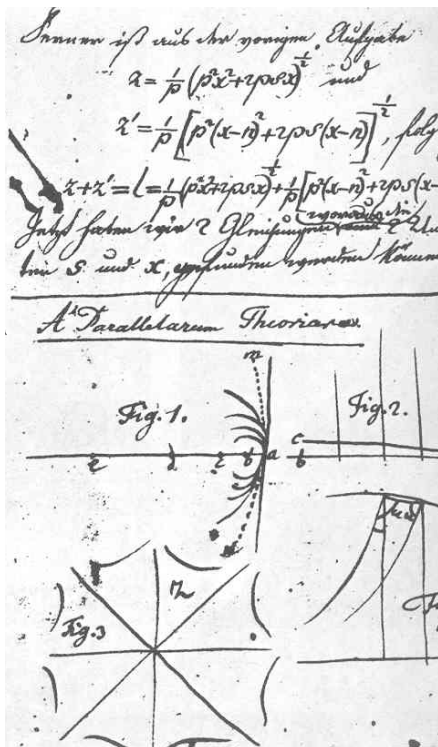 Ferner ist aus der vorigen Aufgabe
z = 1/p (p²x²+2psx)^1/2 und
z' = 1/p [p²(x-n)²+2ps(x-n)]^1/2, folg
z+z' = l = 1/p (p²x²+2psx)^1/2 + 1/p [p²(x-n)²+2ps(x-
Jetzt haben wir 2 Gleichungen woraus die 2 Un
ten s und x, gefunden werden können
Ad Parallelarum Theoriam
m
Fig. 1.
Fig. 2.
c
d
b
a
b
n
Fig. 3